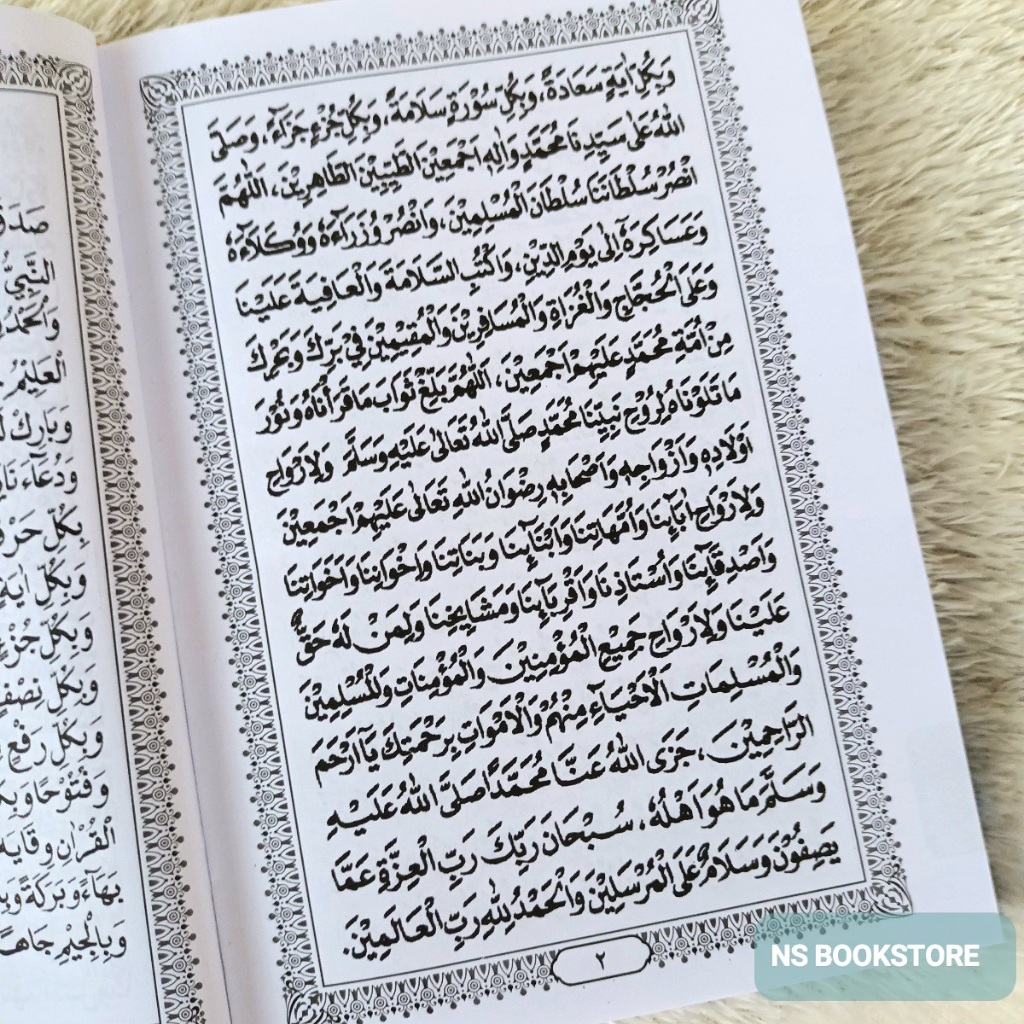 وَبِكُلِّ اٰيَةٍ سَعَادَةً، وَبِكُلِّ سُوْرَةٍ سَلَامَةً، وَبِكُلِّ جُزْءٍ جَزَآءً، وَصَلَّى
اللهُ عَلٰى سَيِّدِنَا مُحَمَّدٍ وَاٰلِهٖ اَجْمَعِيْنَ الطَّيِّبِيْنَ الطَّاهِرِيْنَ، اَللّٰهُمَّ
انْصُرْ سُلْطَانَنَا سُلْطَانَ الْمُسْلِمِيْنَ، وَانْصُرْ وُزَرَآءَهُ وَوُكَلَآءَهُ
وَعَسَاكِرَهُ اِلٰى يَوْمِ الدِّيْنِ، وَاكْتُبِ السَّلَامَةَ وَالْعَافِيَةَ عَلَيْنَا
وَعَلَى الْحُجَّاجِ وَالْغُزَاةِ وَالْمُسَافِرِيْنَ وَالْمُقِيْمِيْنَ فِيْ بَرِّكَ وَبَحْرِكَ
مِنْ اُمَّةِ مُحَمَّدٍ عَلَيْهِمْ اَجْمَعِيْنَ، اَللّٰهُمَّ بَلِّغْ ثَوَابَ مَا قَرَأْنَاهُ وَنُوْرَ
مَا تَلَوْنَاهُ لِرُوْحِ نَبِيِّنَا مُحَمَّدٍ صَلَّى اللهُ تَعَالٰى عَلَيْهِ وَسَلَّمَ وَلِاَرْوَاحِ
اَوْلَادِهٖ وَاَزْوَاجِهٖ وَاَصْحَابِهٖ رِضْوَانُ اللهِ تَعَالٰى عَلَيْهِمْ اَجْمَعِيْنَ
وَلِاَرْوَاحِ اٰبَآئِنَا وَاُمَّهَاتِنَا وَاَبْنَآئِنَا وَبَنَاتِنَا وَاِخْوَانِنَا وَاَخَوَاتِنَا
وَاَصْدِقَآئِنَا وَاُسْتَاذِنَا وَاَقْرِبَآئِنَا وَمَشَايِخِنَا وَلِمَنْ لَهُ حَقٌّ
عَلَيْنَا وَلِاَرْوَاحِ جَمِيْعِ الْمُؤْمِنِيْنَ وَالْمُؤْمِنَاتِ وَالْمُسْلِمِيْنَ
وَالْمُسْلِمَاتِ الْاَحْيَآءِ مِنْهُمْ وَالْاَمْوَاتِ بِرَحْمَتِكَ يَآ اَرْحَمَ
الرَّاحِمِيْنَ، جَزَى اللهُ عَنَّا مُحَمَّدًا صَلَّى اللهُ عَلَيْهِ
وَسَلَّمَ مَا هُوَ اَهْلُهُ، سُبْحَانَ رَبِّكَ رَبِّ الْعِزَّةِ عَمَّا
يَصِفُوْنَ وَسَلَامٌ عَلَى الْمُرْسَلِيْنَ وَالْحَمْدُ لِلّٰهِ رَبِّ الْعَالَمِيْنَ.
٢
النَّبِيُّ
الْعَلِيْمُ
وَبَارِكْ
بِكُلِّ
وَبِكُلِّ اٰيَةٍ
وَبِكُلِّ جُزْءٍ
وَبِكُلِّ
وَبِكُلِّ رَفْعٍ
وَفُتُوْحًا
الْقُرْاٰنِ وِقَايَةً
بَهَآءً وَبَرَكَةً
وَبِالْجِيْمِ
NS BOOKSTORE